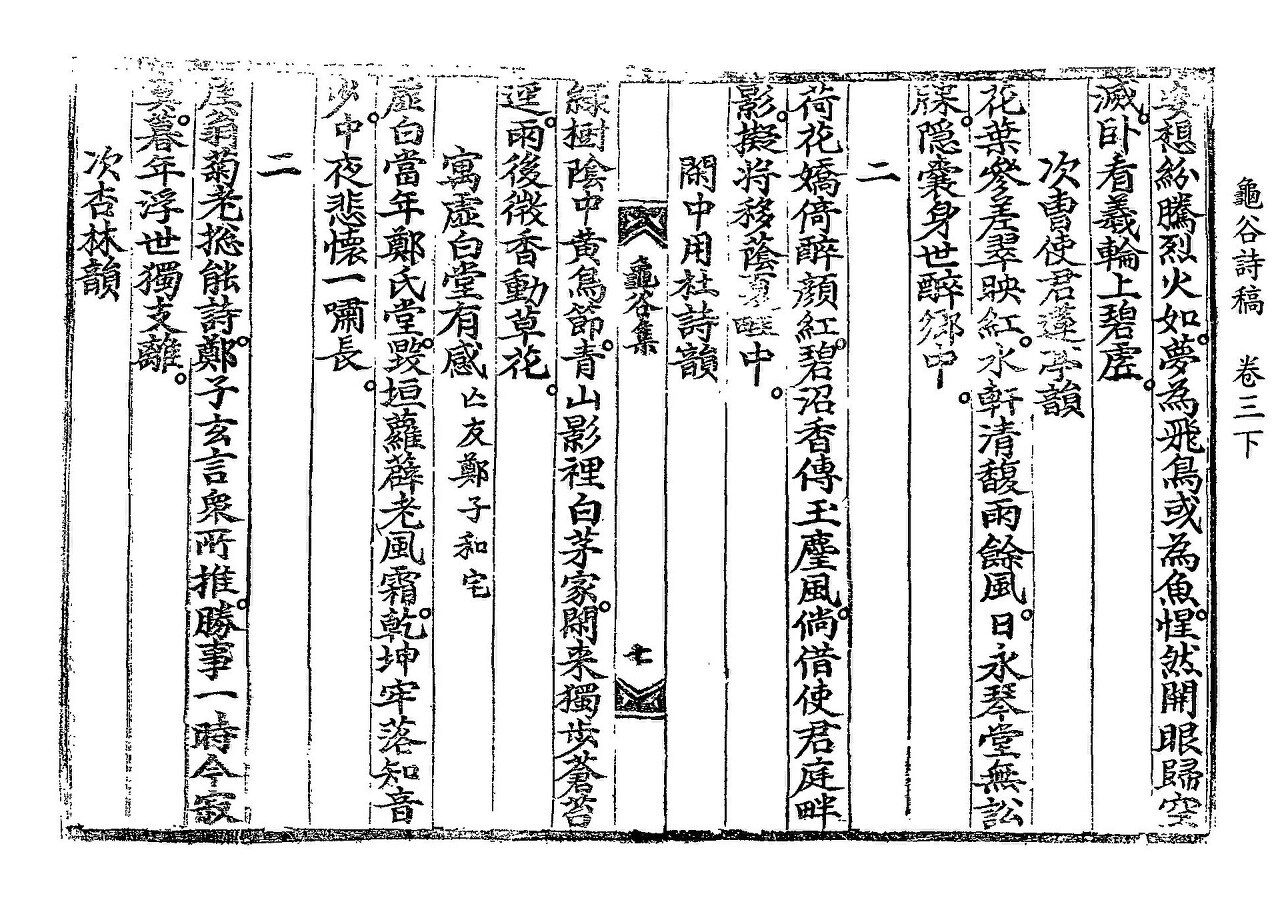 龜谷詩稿 卷三下
妄想紛騰烈火如夢為飛鳥或為魚惺然開眼歸空
滅卧看羲輪上碧虛
次曺使君蓮亭韻
花葉參差翠映紅水軒清馥雨餘風日永琴堂無訟
牒隱囊身世醉鄉中
二
荷花嬌倚醉顏紅碧沼香傳玉麈風倘借使君庭畔
影擬將移蔭 中
閑中用杜詩韻
龜谷集
七
綠樹陰中黃鳥節青山影裡白茅家閑来獨步蒼苔
逕雨後微香動草花
寓虛白堂有感 亡友鄭子和宅
虛白當年鄭氏堂毀垣蘿薜老風霜乾坤牢落知音
少中夜悲懷一嘯長
二
翁菊老揔能詩鄭子玄言衆所推勝事一時今寂
寞暮年浮世獨支離
次杏林韻